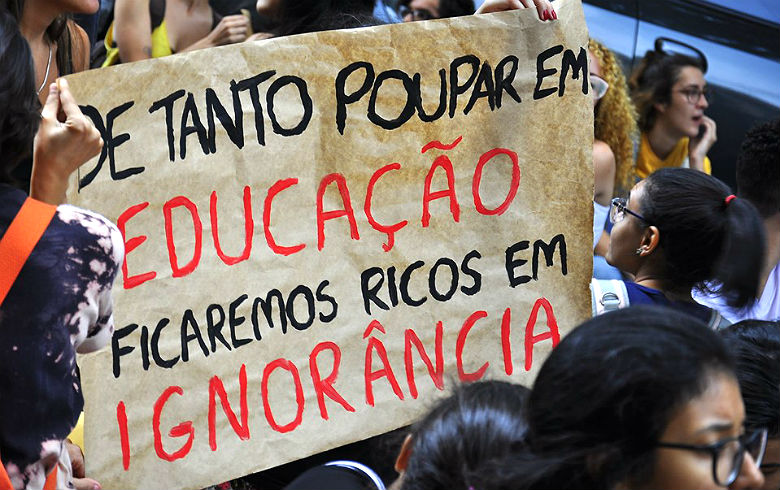 DE TANTO POUPAR EM
EDUCAÇÃO
FICAREMOS RICOS EM
IGNORÂNCIA